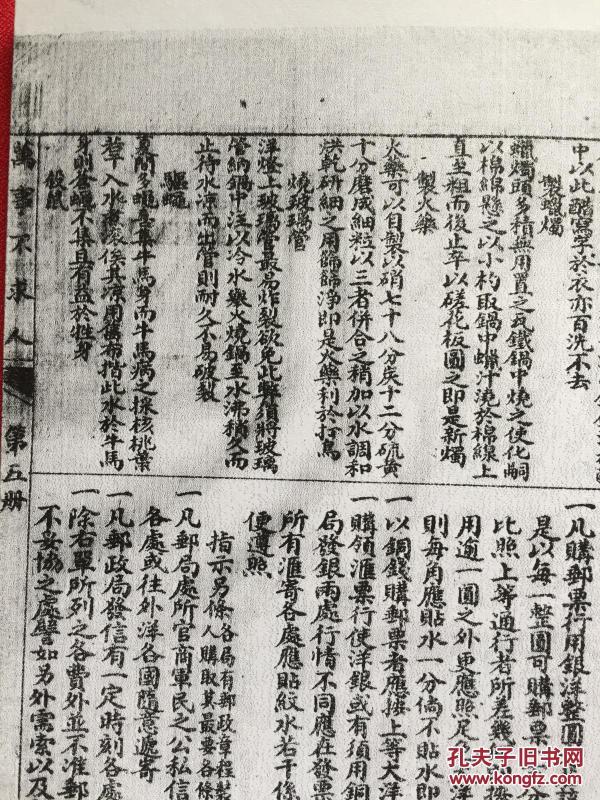 中以此醋寫字於衣亦百洗不去
製蠟燭
蠟燭頭多積無用置之瓦鐵鍋中燒之使化嗣
以棉綿懸之以小杓取鍋中蠟汁澆於棉線上
直至粗而後止卒以磋花板圖之即是新燭
製火藥
火藥可以自製以硝七十八分炭十二分硫黄
十分磨成細粒以三者併合之稍加以水調和
烘乾研細之用篩篩淨即是火藥利於打鳥
燒玻璃管
洋燈上玻璃管最易炸裂欲免此弊須將玻璃
管納鍋中泛以冷水藥火燒鍋至水沸稍久而
止待水凉而出管則耐久不易破裂
驅蠅
夏間多蠅喜集牛馬身而牛馬病之採核桃葉
若干入水煮滾俟其凉用舊布揩此水於牛馬
身則蒼蠅不集且有益於牲身
殺鼠
萬事不求人
第五册
一凡購郵票行用銀洋整圓
是以每一整圓可購郵票
比照上等通行者所差幾
用逾一圓之外更應照足
則每角應貼水一分倘不貼水即
一以銅錢購郵票者應按上等大洋
一購領滙票行使洋銀或有須用銅
局發銀兩處行情不同應在發票
所有滙寄各處應貼絞水若干係
便遵照
指示另條各局有郵政章程製
人購取其最要各條
一凡郵局處所官商軍民之公私信
各處或往外洋各國隨意遞寄
一凡郵政局發信有一定時刻各處
一除右單所列之各費外並不准郵
不妥協之處譬如另外需索以及
孔夫子旧书网